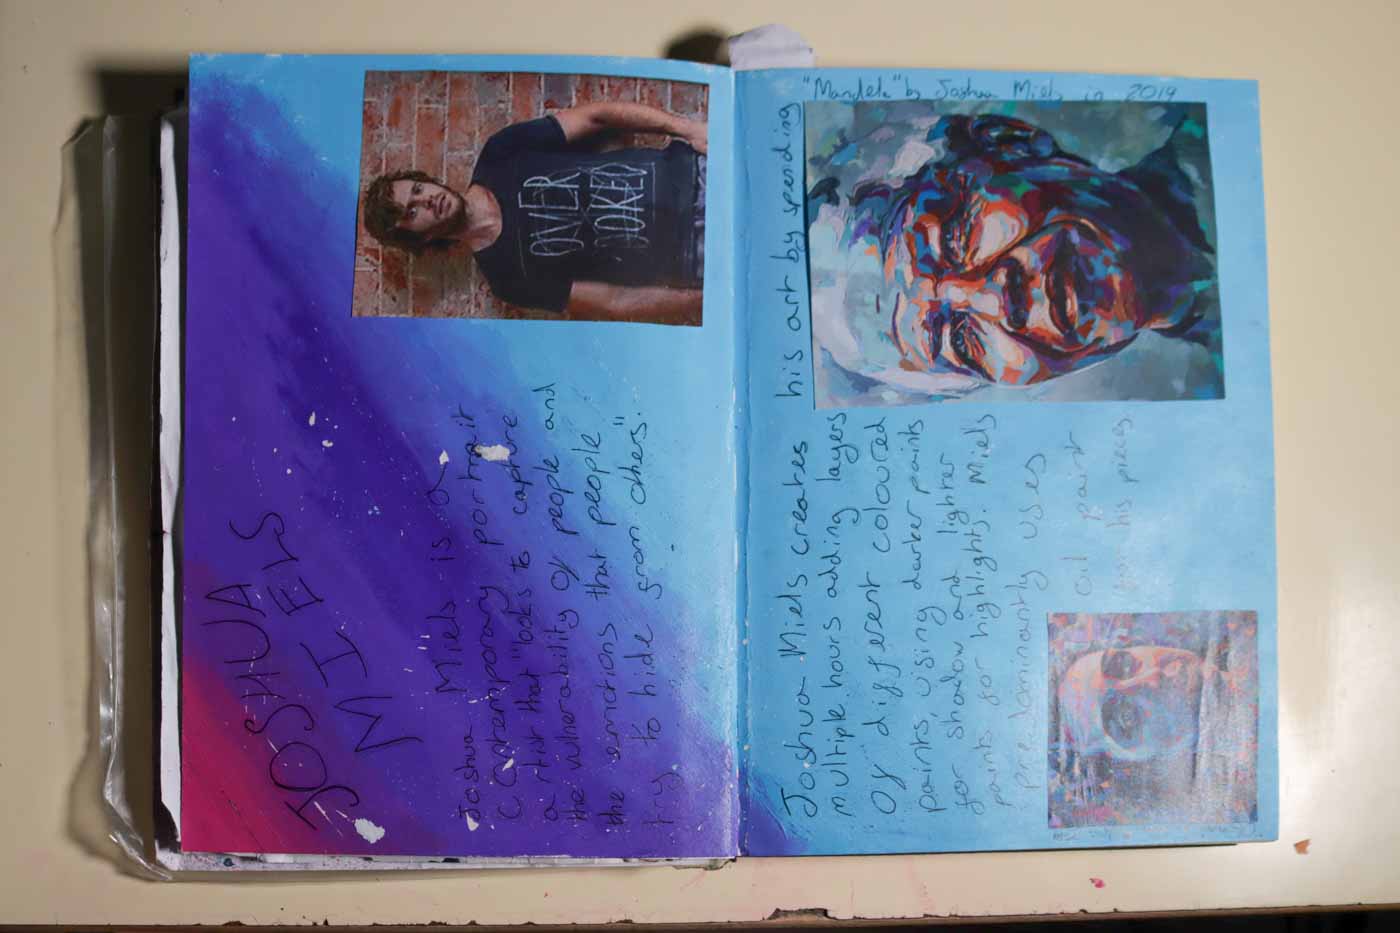 JOSHUA
MIELS
Joshua Miels is a
contemporary portrait
artist that "looks to capture
the vulnerability of people and
the emotions that people
try to hide from others".
OVER
BOOKED
"Mandela" by Joshua Miels in 2019
Joshua Miels creates his art by spending
multiple hours adding layers
of different coloured
paints, using darker paints
for shadow and lighter
paints for highlights. Miels
predominantly uses
oil paint
for his pieces